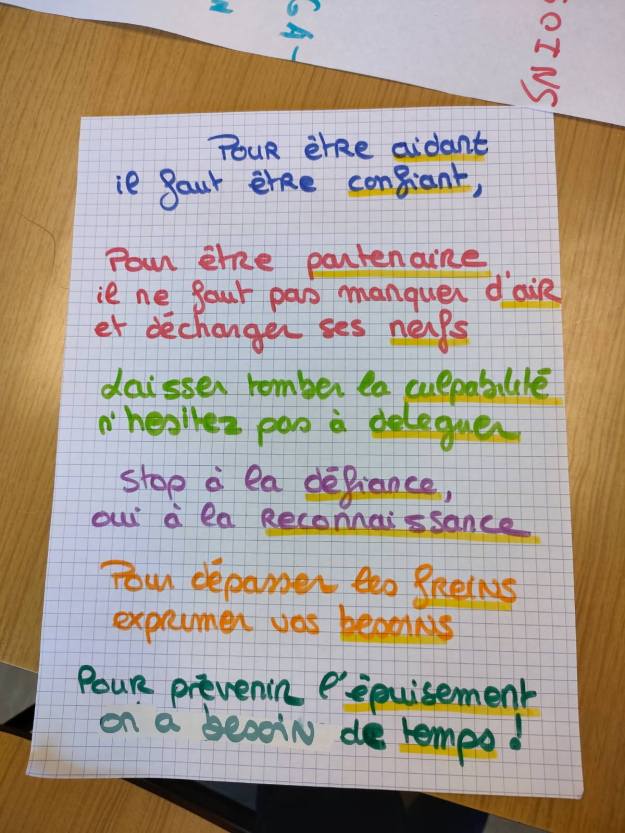 GA-
N
SOINS
Pour être aidant
il faut être confiant,
Pour être partenaire
il ne faut pas manquer d'air
et décharger ses nerfs
Laisser tomber la culpabilité
n'hesitez pas à deleguer
Stop à la défiance,
oui à la Reconnaissance
Pour dépasser les freins
exprimer vos besoins
Pour prévenir l'épuisement
on a besoin de temps !